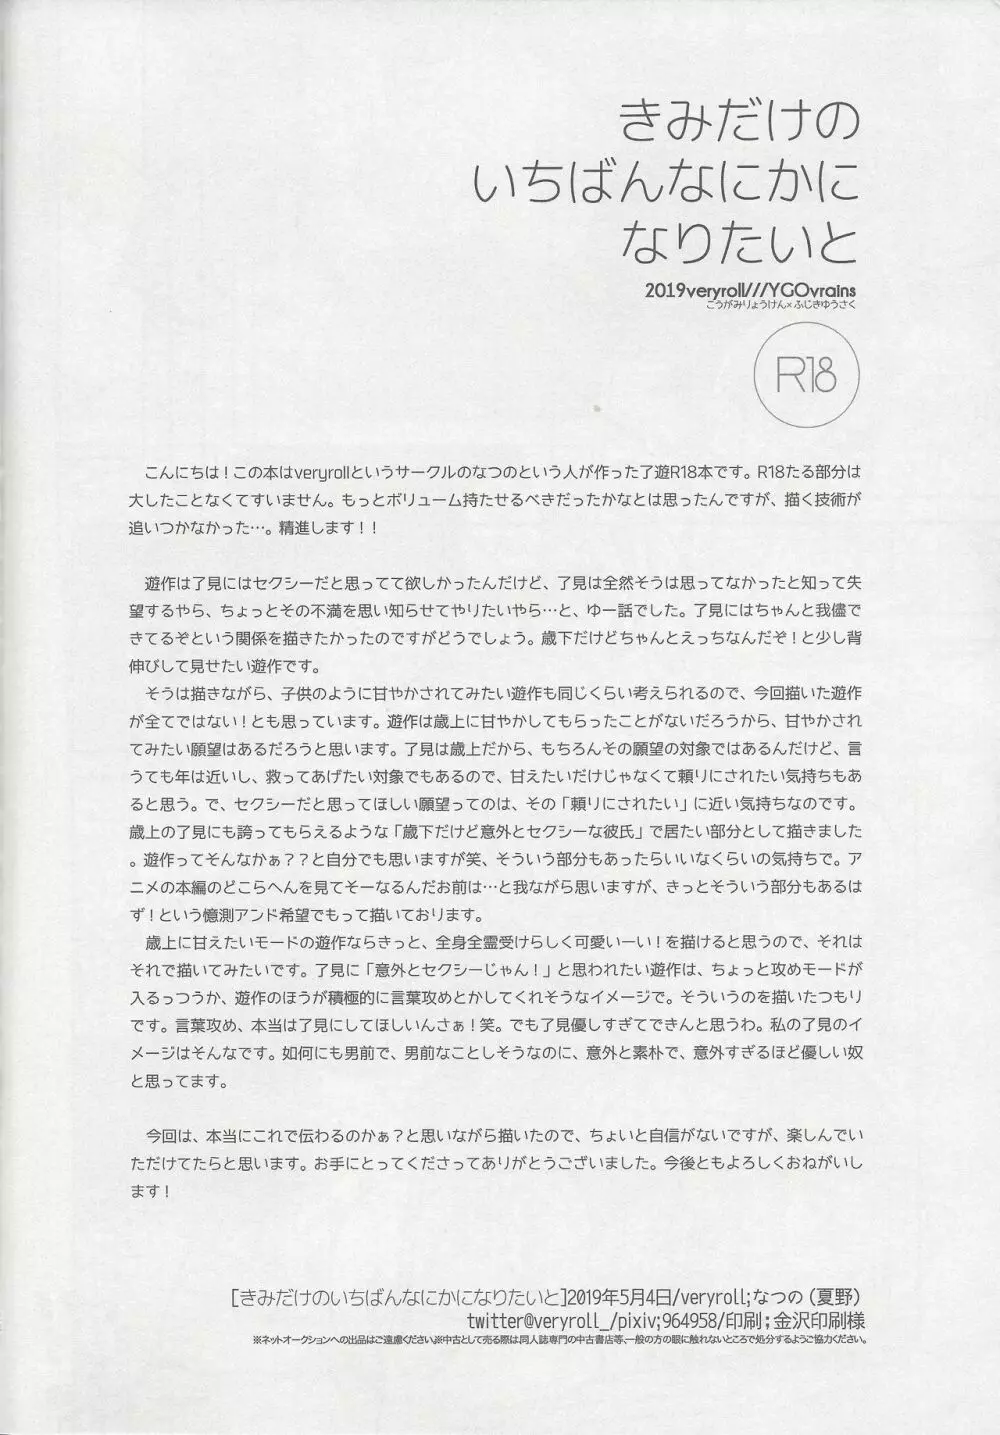 きみだけの
いちばんなにかに
なりたいと
2019veryroll///YGOvrains
こうがみりょうけん×ふじきゆうさく
R18
こんにちは！この本はveryrollというサークルのなつのという人が作った了遊R18本です。R18たる部分は
大したことなくてすいません。もっとボリューム持たせるべきだったかなとは思ったんですが、描く技術が
追いつかなかった…。精進します！！
遊作は了見にはセクシーだと思ってて欲しかったんだけど、了見は全然そうは思ってなかったと知って失
望するやら、ちょっとその不満を思い知らせてやりたいやら…と、ゆー話でした。了見にはちゃんと我儘で
きてるぞという関係を描きたかったのですがどうでしょう。歳下だけどちゃんとえっちなんだぞ！と少し背
伸びして見せたい遊作です。
そうは描きながら、子供のように甘やかされてみたい遊作も同じくらい考えられるので、今回描いた遊作
が全てではない！とも思っています。遊作は歳上に甘やかしてもらったことがないだろうから、甘やかされ
てみたい願望はあるだろうと思います。了見は歳上だから、もちろんその願望の対象ではあるんだけど、言
うても年は近いし、救ってあげたい対象でもあるので、甘えたいだけじゃなくて頼りにされたい気持ちもあ
ると思う。で、セクシーだと思ってほしい願望ってのは、その「頼りにされたい」に近い気持ちなのです。
歳上の了見にも誇ってもらえるような「歳下だけど意外とセクシーな彼氏」で居たい部分として描きました
。遊作ってそんなかぁ？？と自分でも思いますが笑、そういう部分もあったらいいなくらいの気持ちで。ア
ニメの本編のどこらへんを見てそーなるんだお前は…と我ながら思いますが、きっとそういう部分もあるは
ず！という憶測アンド希望でもって描いております。
歳上に甘えたいモードの遊作ならきっと、全身全霊受けらしく可愛いーい！を描けると思うので、それは
それで描いてみたいです。了見に「意外とセクシーじゃん！」と思われたい遊作は、ちょっと攻めモードが
入るっつうか、遊作のほうが積極的に言葉攻めとかしてくれそうなイメージで。そういうのを描いたつもり
です。言葉攻め、本当は了見にしてほしいんさぁ！笑。でも了見優しすぎてできんと思うわ。私の了見のイ
メージはそんなです。如何にも男前で、男前なことしそうなのに、意外と素朴で、意外すぎるほど優しい奴
と思ってます。
今回は、本当にこれで伝わるのかぁ？と思いながら描いたので、ちょいと自信がないですが、楽しんでい
ただけてたらと思います。お手にとってくださってありがとうございました。今後ともよろしくおねがいし
ます！
[きみだけのいちばんなにかになりたいと]2019年5月4日/veryroll;なつの（夏野）
twitter@veryroll_/pixiv;964958/印刷；金沢印刷様
※ネットオークションへの出品はご遠慮ください※中古として売る際は同人誌専門の中古書店等、一般の方の眼に触れないところで処分するようご協力ください。